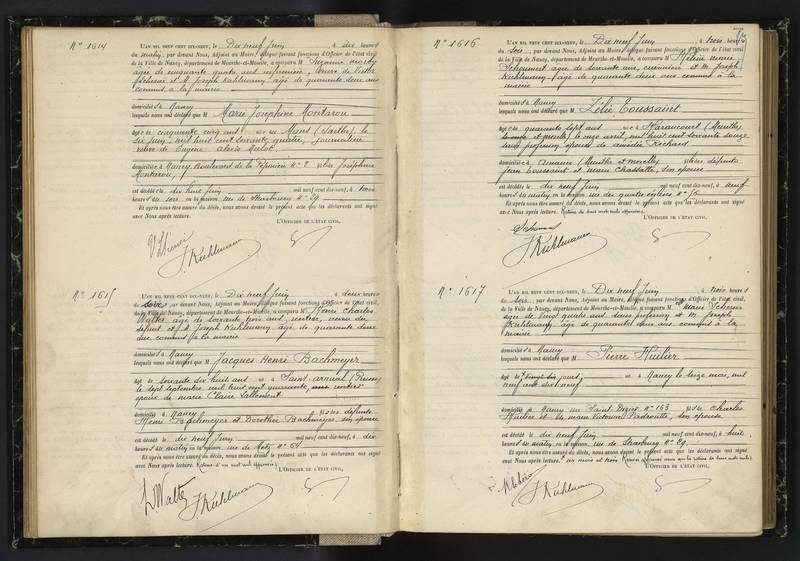 N° 1614
L'AN MIL NEUF CENT DIX-NEUF, le Dix neuf Juin, à dix heures
du matin, par devant Nous, Adjoint au Maire, délégué faisant fonctions d'Officier de l'état civil
de la Ville de Nancy, département de Meurthe-et-Moselle, a comparu M Suzanne
âgée de cinquante quatre ans infirmière, veuve de Victor
et M. Joseph Kuhlmann âgé de quarante deux ans
commis à la mairie
domicilié s à Nancy
lesquels nous ont déclaré que M Marie Joséphine Montarou
âgé e de cinquante cinq ans né e au Mans (Sarthe), le
six Juin mil huit cent soixante quatre, journalière
veuve de Eugène Alexis Mulot
domicilié e à Nancy Boulevard de la Pépinière n° 2 fille Joséphine
Montarou,
est décédé e le dix huit Juin mil neuf cent dix-neuf, à trois
heures du soir en la maison rue de Strasbourg n° 29
Et après nous être assuré du décès, nous avons dressé le présent acte que les déclarants ont signé
avec Nous après lecture.
L'OFFICIER DE L'ÉTAT CIVIL,
J. Kuhlmann
N° 1615
L'AN MIL NEUF CENT DIX-NEUF, le Dix neuf Juin, à deux heures
du soir, par devant Nous, Adjoint au Maire, délégué faisant fonctions d'Officier de l'état civil,
de la Ville de Nancy, département de Meurthe-et-Moselle, a comparu M Henri Charles
Walter, âgé de soixante trois ans, rentier, neveu du
défunt et M. Joseph Kuhlmann âgé de quarante deux
ans, commis à la mairie
domicilié s à Nancy
lesquels nous ont déclaré que M Jacques Henri Bachmeyer
âgé de soixante dix huit ans né à Saint Arnual (Prusse)
le sept septembre mil huit cent quarante, rentier
époux de Marie Claire Lallement
domicilié à Nancy fils des défunts
Henri Bachmeyer et Dorothée Bachmeyer, son épouse
est décédé le dix neuf Juin mil neuf cent dix-neuf, à dix
heures du matin en la maison rue de Metz n° 64
Et après nous être assuré du décès, nous avons dressé le présent acte que les déclarants ont signé
avec Nous après lecture.
L'OFFICIER DE L'ÉTAT CIVIL,
Walter J. Kuhlmann
N° 1616
L'AN MIL NEUF CENT DIX-NEUF, le Dix neuf Juin, à trois heures
du soir, par devant Nous, Adjoint au Maire, délégué faisant fonctions d'Officier de l'état civil
de la Ville de Nancy, département de Meurthe-et-Moselle, a comparu M Marie
âgée de soixante ans, cuisinière et M. Joseph
Kuhlmann, âgé de quarante deux ans commis à la
mairie
domicilié s à Nancy
lesquels nous ont déclaré que M Zélie Toussaint
âgé e de quarante sept ans né e à Haraucourt (Meurthe)
avril mil huit cent soixante douze
sans profession épouse de Amédée Rochard
domicilié e à Amance (Meurthe et Moselle) fille des défunts
Jean Toussaint et Marie Chassatte, son épouse
est décédé e le dix neuf Juin mil neuf cent dix-neuf, à neuf
heures du matin en la maison rue des quatre églises n°
Et après nous être assuré du décès, nous avons dressé le présent acte que les déclarants ont signé
avec Nous après lecture.
L'OFFICIER DE L'ÉTAT CIVIL,
J. Kuhlmann
N° 1617
L'AN MIL NEUF CENT DIX-NEUF, le Dix neuf Juin, à trois heures
du soir, par devant Nous, Adjoint au Maire, délégué faisant fonctions d'Officier de l'état civil,
de la Ville de Nancy, département de Meurthe-et-Moselle, a comparu M Marie
âgée de vingt quatre ans, sans profession et M. Joseph
Kuhlmann, âgé de quarante deux ans commis à la
mairie
domicilié s à Nancy
lesquels nous ont déclaré que M Pierre Huilier
âgé de né à Nancy le treize mai, mil
neuf cent dix neuf
domicilié à Nancy rue Saint Dizier n° 163 fils de Charles
Huilier et de Marie Victorine son épouse
est décédé le dix neuf Juin mil neuf cent dix-neuf, à huit
heures du matin en la maison rue de Strasbourg n° 29
Et après nous être assuré du décès, nous avons dressé le présent acte que les déclarants ont signé
avec Nous après lecture.
L'OFFICIER DE L'ÉTAT CIVIL,
J. Kuhlmann